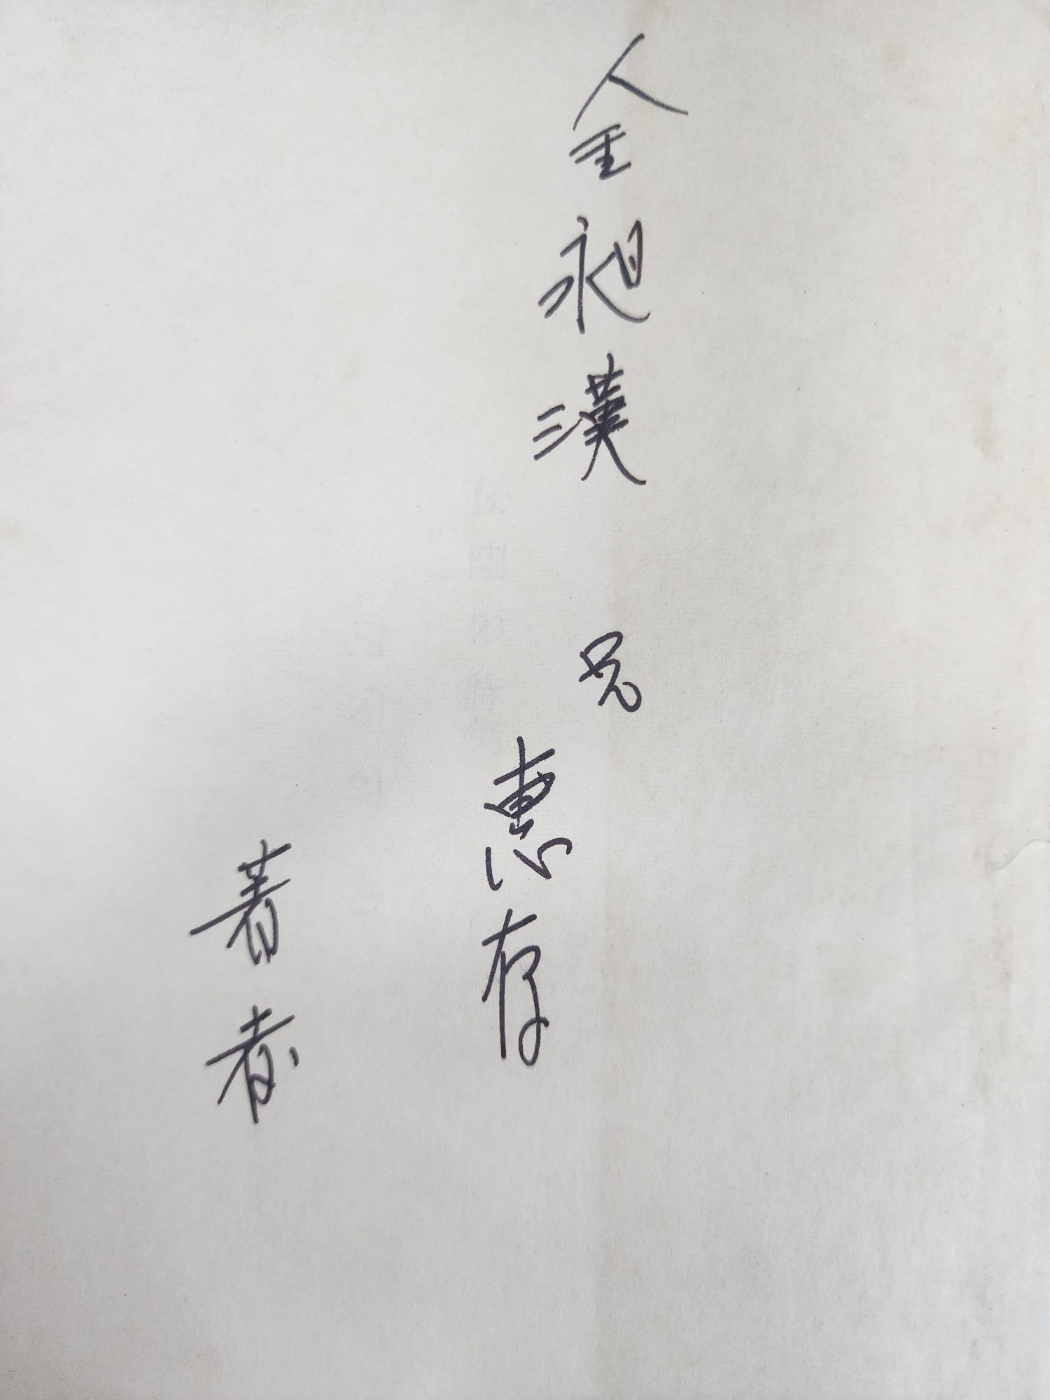 金昶漢 兄
惠存
著者